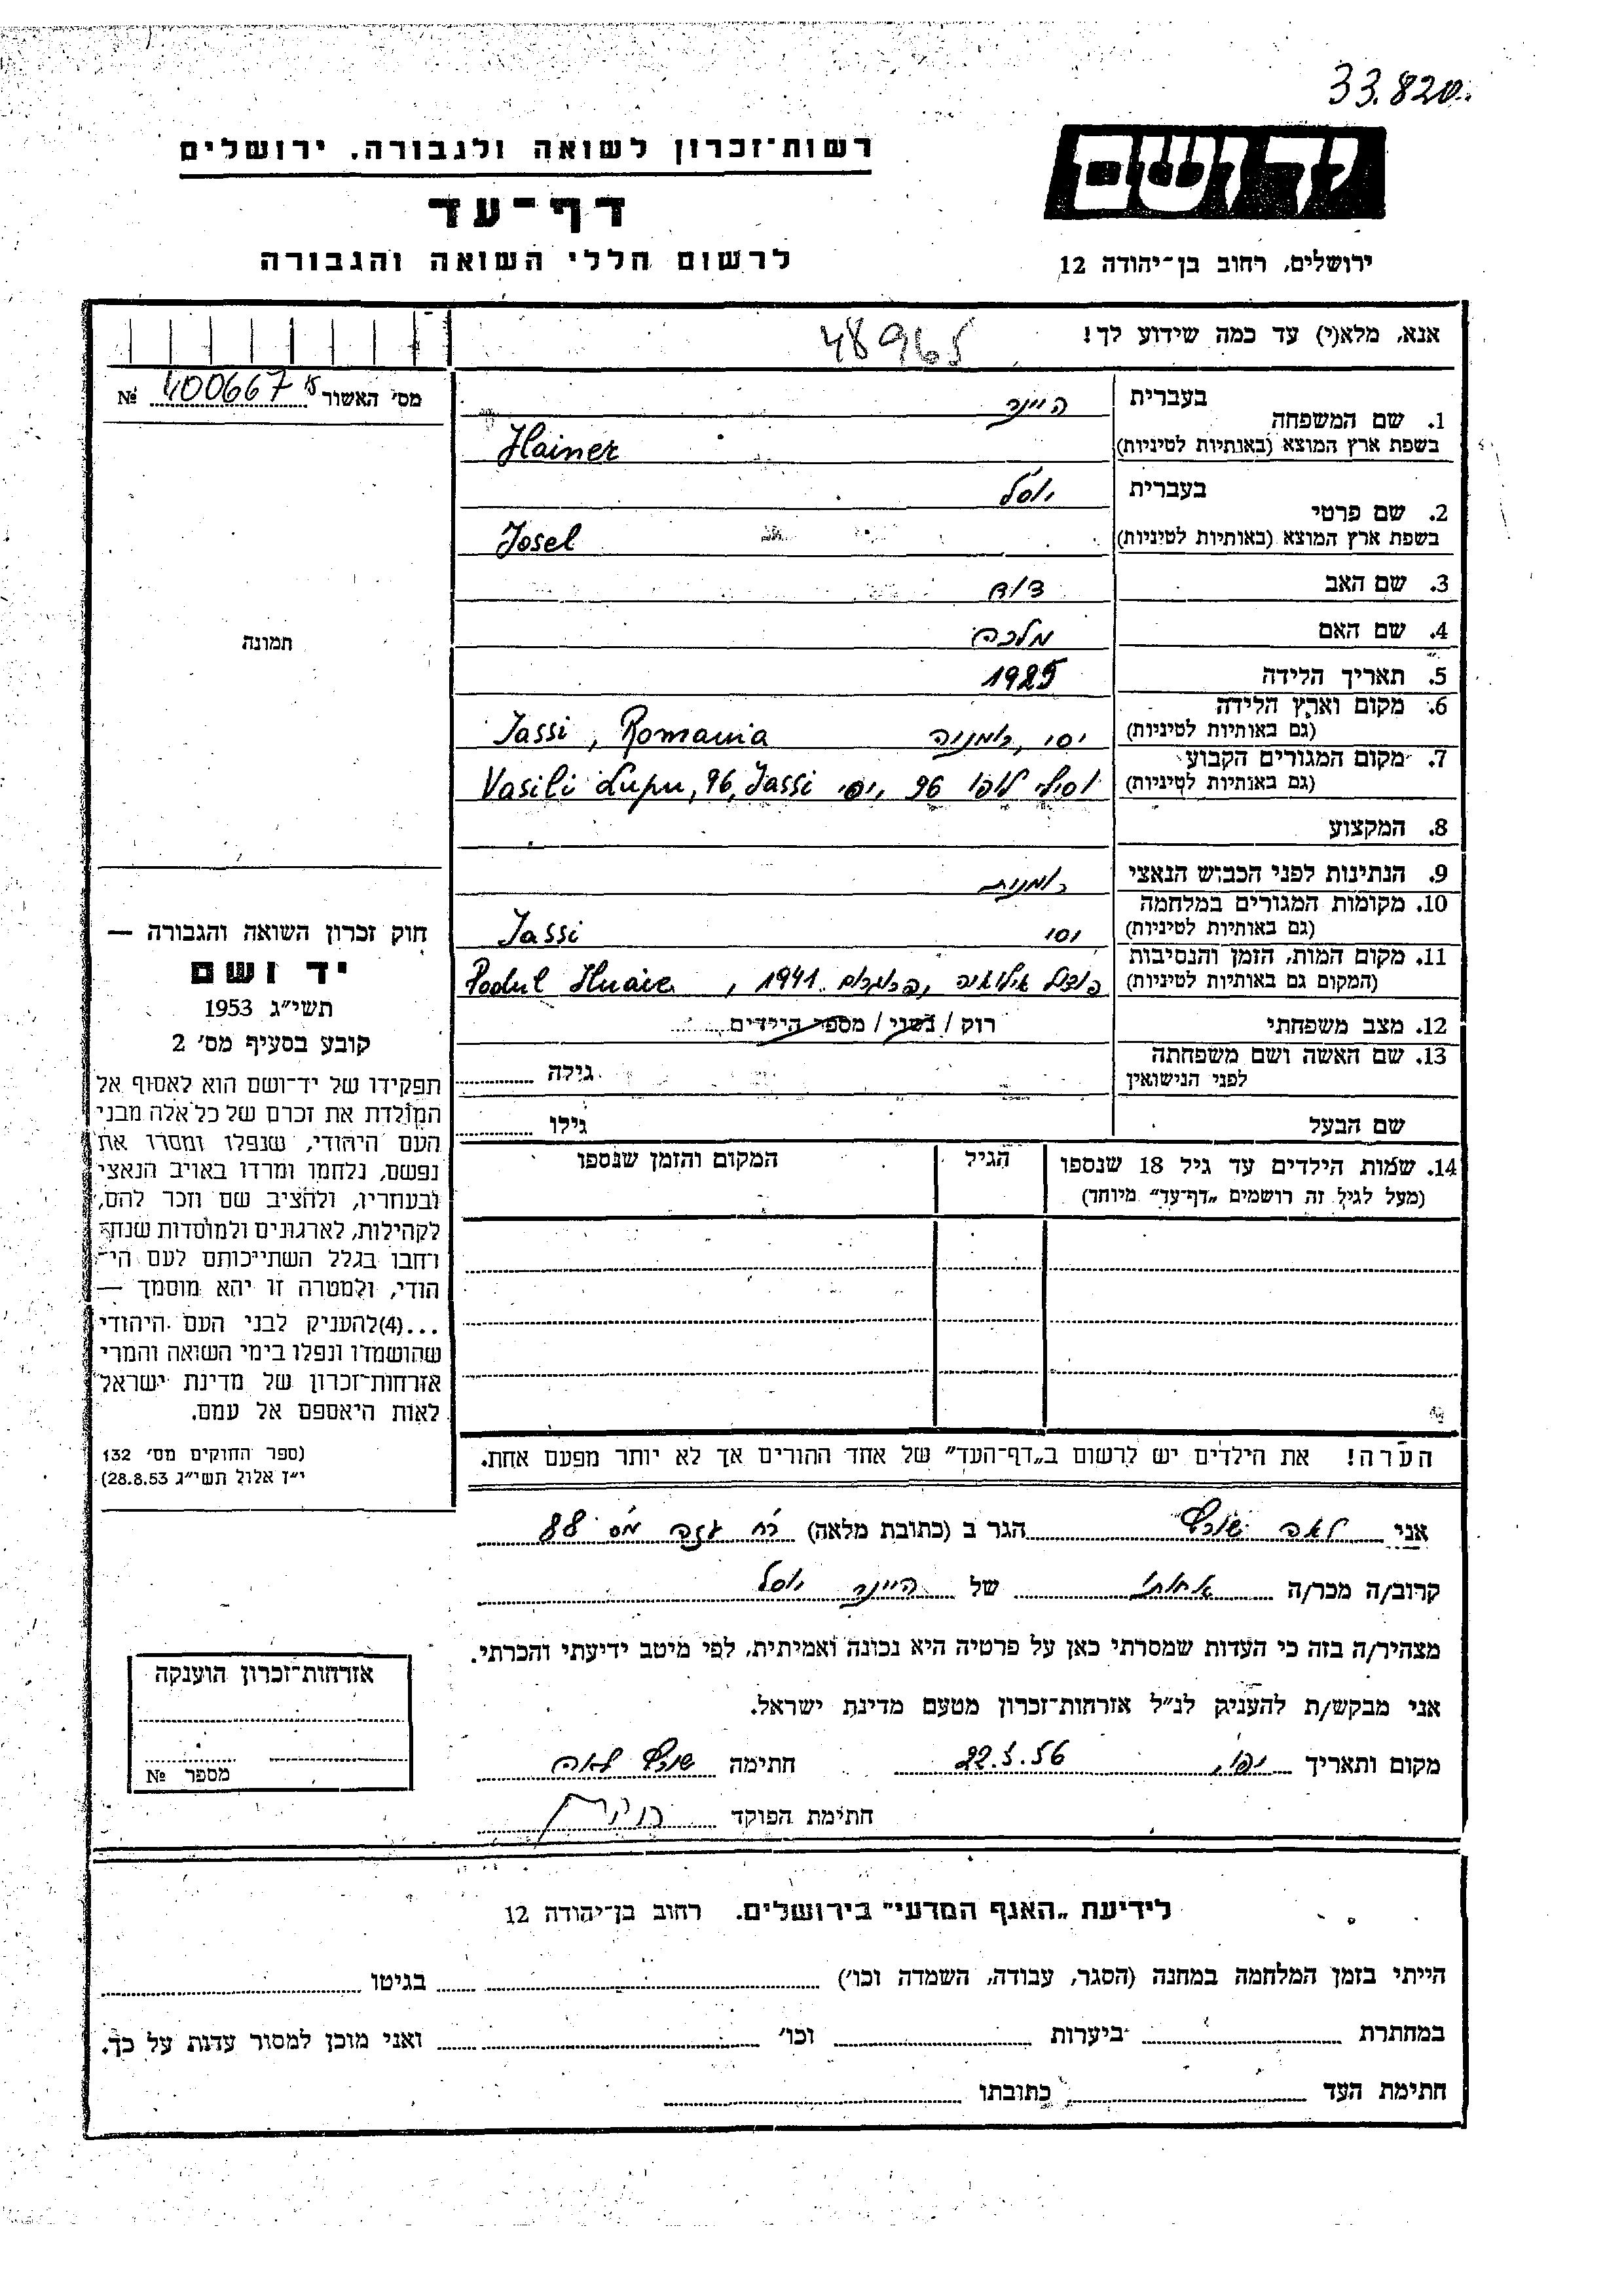 33.820
רשות־זכרון לשואה ולגבורה, ירושלים
יד ושם
דף־עד
לרשום חללי השואה והגבורה
ירושלים, רחוב בן־יהודה 12
אנא, מלא(י) עד כמה שידוע לך!
48965
מס' האשור № 400667
בעברית היינר
1. שם המשפחה
בשפת ארץ המוצא (באותיות לטיניות) Hainer
בעברית יוסל
2. שם פרטי
בשפת ארץ המוצא (באותיות לטיניות) Josel
3. שם האב דוד
4. שם האם מלכה
תמונה
5. תאריך הלידה 1925
6. מקום וארץ הלידה
(גם באותיות לטיניות) יסי, רומניה Jassi, Romania
7. מקום המגורים הקבוע
(גם באותיות לטיניות) וסילי לופו 96, יסי Vasili Lupu, 96, Jassi
8. המקצוע
9. הנתינות לפני הכבוש הנאצי רומנית
10. מקומות המגורים במלחמה
(גם באותיות לטיניות) יסי Jassi
11. מקום המות, הזמן והנסיבות
(המקום גם באותיות לטיניות) , 1941 Podul Iluaie
12. מצב משפחתי רוק / נשוי / מספר הילדים
13. שם האשה ושם משפחתה
לפני הנישואין
גילה
שם הבעל גילו
14. שמות הילדים עד גיל 18 שנספו הגיל המקום והזמן שנספו
(מעל לגיל זה רושמים „דף־עד" מיוחד)
חוק זכרון השואה והגבורה —
יד ושם
תשי"ג 1953
קובע בסעיף מס' 2
תפקידו של יד־ושם הוא לאסוף אל
המולדת את זכרם של כל אלה מבני
העם היהודי, שנפלו ומסרו את
נפשם, נלחמו ומרדו באויב הנאצי
ובעוזריו, ולהציב שם וזכר להם,
לקהילות, לארגונים ולמוסדות שנח־
רחבו בגלל השתייכותם לעם הי־
הודי, ולמטרה זו יהא מוסמך —
...(4) להעניק לבני העם היהודי
שהושמדו ונפלו בימי השואה והמרי
אזרחות־זכרון של מדינת ישראל
לאות היאספם אל עמם.
(ספר החוקים מס' 132
י"ז אלול תשי"ג 28.8.53)
הערה! את הילדים יש לרשום ב„דף־העד" של אחד ההורים אך לא יותר מפעם אחת.
אני לאה הגר ב (כתובת מלאה) רח' עזה מס 88
קרוב/ה מכר/ה אחותו של היינר יוסל
מצהיר/ה בזה כי העדות שמסרתי כאן על פרטיה היא נכונה ואמיתית, לפי מיטב ידיעתי והכרתי.
אני מבקש/ת להעניק לנ"ל אזרחות־זכרון מטעם מדינת ישראל.
מקום ותאריך יפו, 22.5.56 חתימה לאה
חתימת הפוקד
אזרחות־זכרון הוענקה
מספר №
לידיעת „האגף המדעי" בירושלים. רחוב בן־יהודה 12
הייתי בזמן המלחמה במחנה (הסגר, עבודה, השמדה וכו') בגיטו
במחתרת ביערות וכו' ואני מוכן למסור עדות על כך.
חתימת העד כתובתו